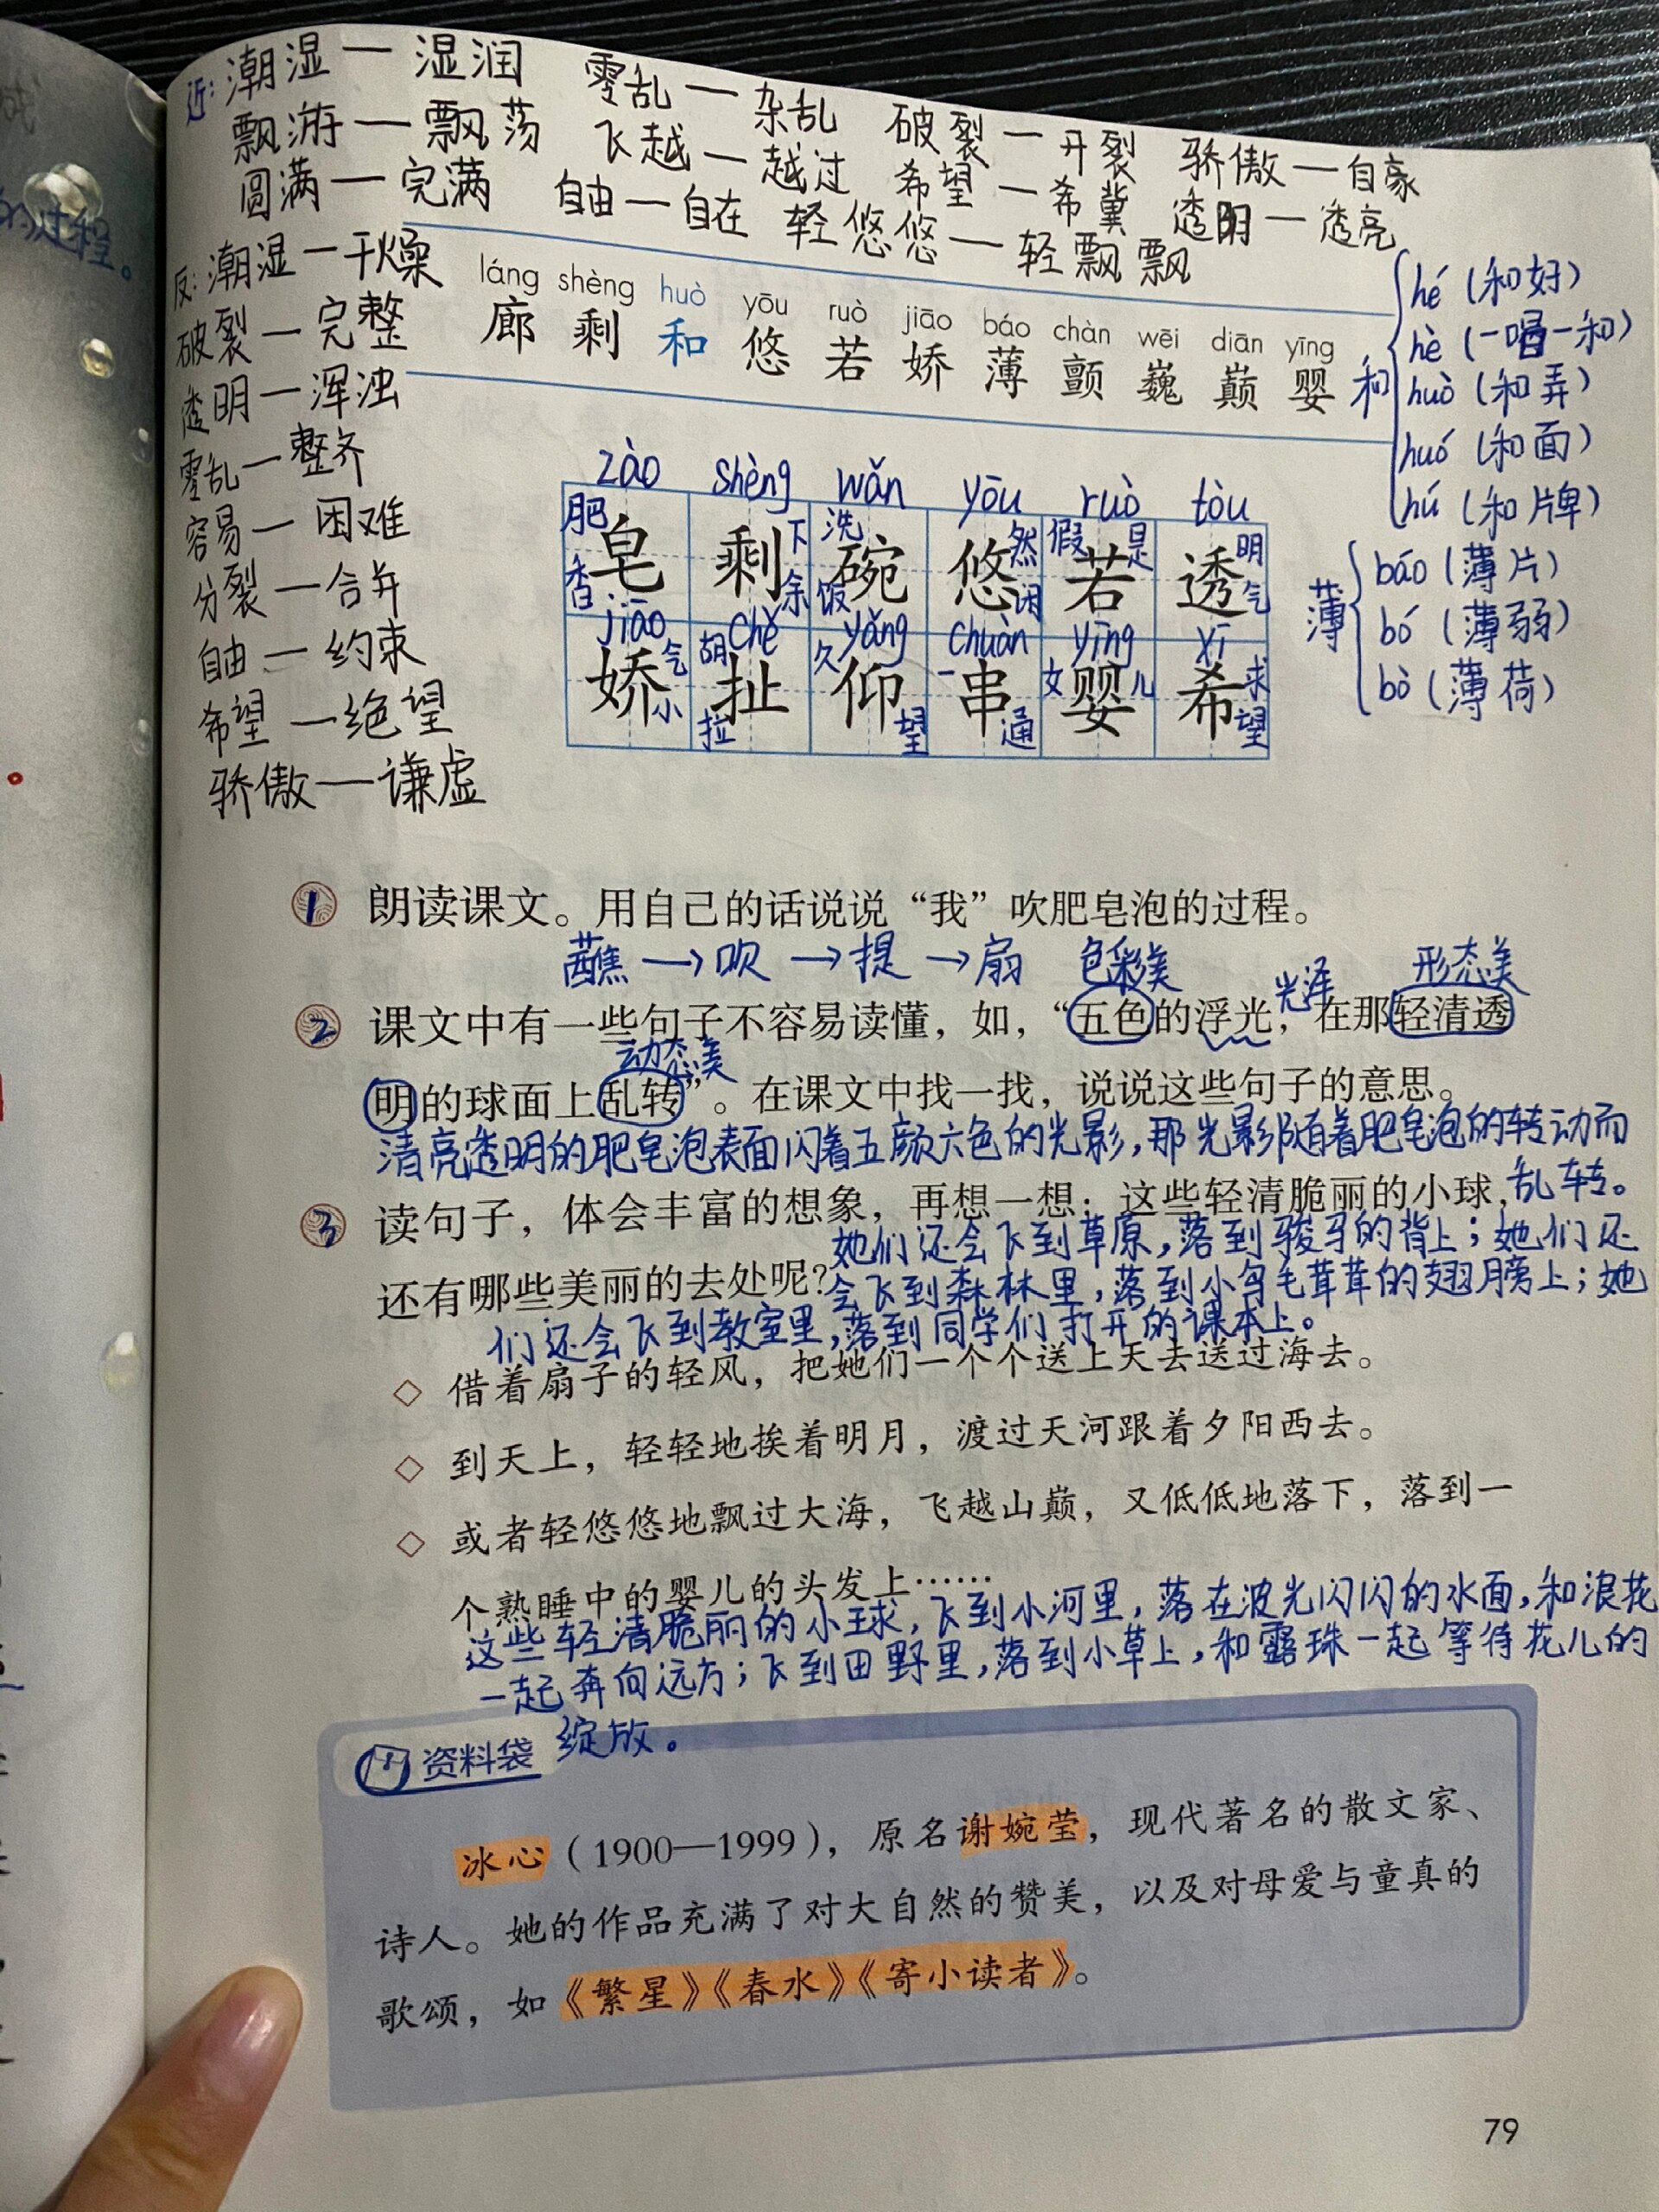 近：潮湿—湿润 零乱—杂乱 破裂—开裂 骄傲—自豪
飘游—飘荡 飞越—越过 希望—希冀 透明—透亮
圆满—完满 自由—自在 轻悠悠—轻飘飘
反：潮湿—干燥
破裂—完整
透明—浑浊
零乱—整齐
容易—困难
分裂—合并
自由—约束
希望—绝望
骄傲—谦虚
的过程。
láng shèng huò yōu ruò jiāo báo chàn wēi diān yīng
廊 剩 和 悠 若 娇 薄 颤 巍 巅 婴
和
hé（和好）
hè（一唱一和）
huò（和弄）
huó（和面）
hú（和牌）
薄
báo（薄片）
bó（薄弱）
bò（薄荷）
zào shèng wǎn yōu ruò tòu
肥 下 洗 然 假 是 明
皂 剩 碗 悠 若 透
香 余 饭 闲 气
jiāo chě yǎng chuàn yīng xī
气 胡 久 一 女 儿 求
娇 扯 仰 串 婴 希
小 拉 望 通 望
1 朗读课文。用自己的话说说“我”吹肥皂泡的过程。
蘸→吹→提→扇 色彩美 光泽 形态美
2 课文中有一些句子不容易读懂，如，“五色的浮光，在那轻清透
动态美
明的球面上乱转”。在课文中找一找，说说这些句子的意思。
清亮透明的肥皂泡表面闪着五颜六色的光影，那光影随着肥皂泡的转动而
乱转。
3 读句子，体会丰富的想象，再想一想：这些轻清脆丽的小球，
还有哪些美丽的去处呢？
她们还会飞到草原，落到骏马的背上；她们还
会飞到森林里，落到小鸟毛茸茸的翅膀上；她
们还会飞到教室里，落到同学们打开的课本上。
◇ 借着扇子的轻风，把她们一个个送上天去送过海去。
◇ 到天上，轻轻地挨着明月，渡过天河跟着夕阳西去。
◇ 或者轻悠悠地飘过大海，飞越山巅，又低低地落下，落到一
个熟睡中的婴儿的头发上……
这些轻清脆丽的小球，飞到小河里，落在波光闪闪的水面，和浪花
一起奔向远方；飞到田野里，落到小草上，和露珠一起等待花儿的
绽放。
资料袋
冰心（1900—1999），原名谢婉莹，现代著名的散文家、
诗人。她的作品充满了对大自然的赞美，以及对母爱与童真的
歌颂，如《繁星》《春水》《寄小读者》。
79